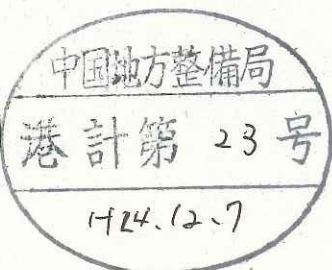 中国地方整備局
港計第 23 号
H24.12.7